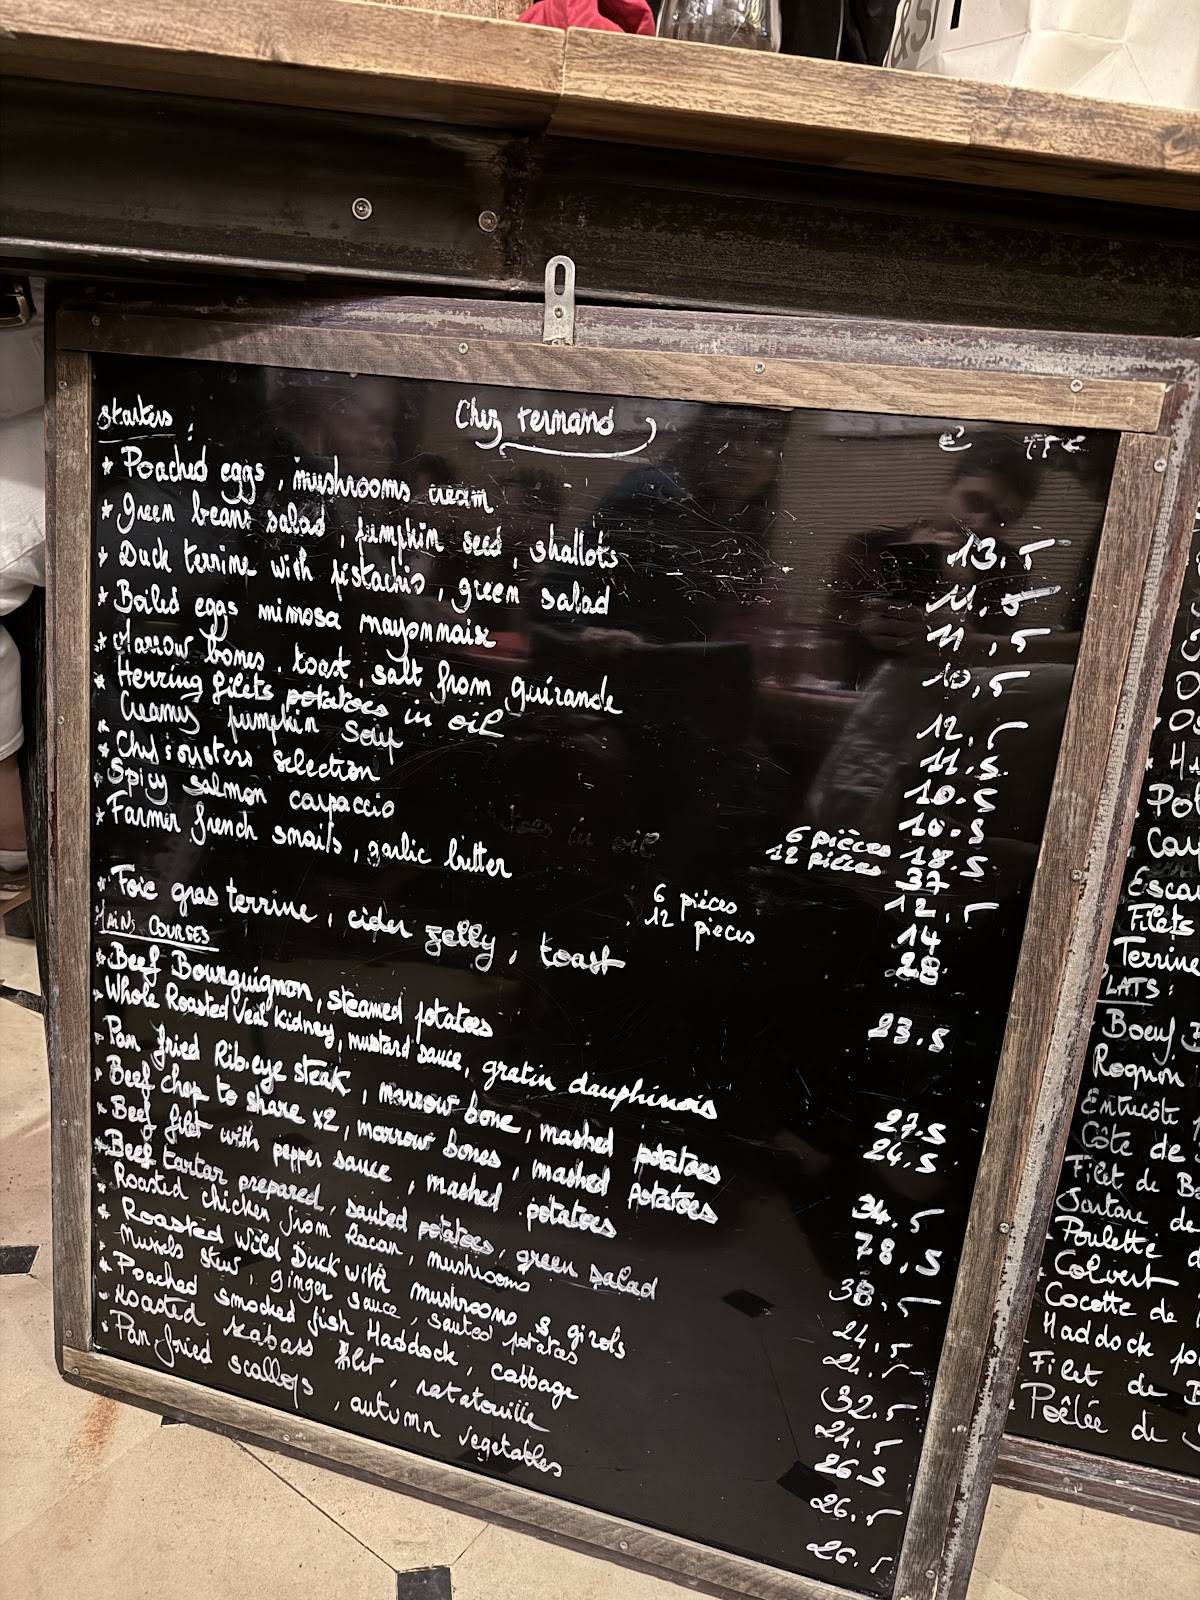 &SI
Chez Fernand
Starters :
* Poached eggs, mushrooms cream 13.5
* Green beans salad, pumpkin seed, shallots 11.5
* Duck terrine with pistachio, green salad 11,5
* Boiled eggs mimosa mayonnaise 10,5
* Marrow bones, toast, salt from guérande 12.5
* Herring filets potatoes in oil 11.5
Creamy pumpkin Soup 10.5
* Chef's oysters Selection 6 pièces 18.5
12 pièces 37
* Spicy salmon carpaccio 12.5
* Farmer french snails, garlic butter 6 pièces 14
12 pieces 28
* Foie gras terrine, cider jelly, toast 23.5
Main COURSES
* Beef Bourguignon, steamed potatoes 27.5
* Whole Roasted Veal Kidney, mustard sauce, gratin dauphinois 24.5
* Pan fried Rib.eye steak, marrow bone, mashed potatoes 34.5
* Beef chop to share x2, marrow bones, mashed potatoes 78.5
* Beef filet with pepper sauce, mashed potatoes 38.5
* Beef tartar prepared, sauted potatoes, green salad 24.5
Roasted chicken from Racan, mushrooms 24.5
* Roasted Wild Duck with mushrooms & girols 32.5
Mussels stew, ginger sauce, sauted potatoes 24.5
* Poached smocked fish Haddock, cabbage 26.5
* Roasted seabass filet, ratatouille 26.5
* Pan fried scallops, autumn vegetables 26.5
Escar
Filets
Terrine
PLATS :
Boeuf B
Rognon
Entrecôte
Côte de
Filet de B
Tartare de
Poulette
Colvert
Cocotte de
Haddock po
Filet de B
Poêlée de